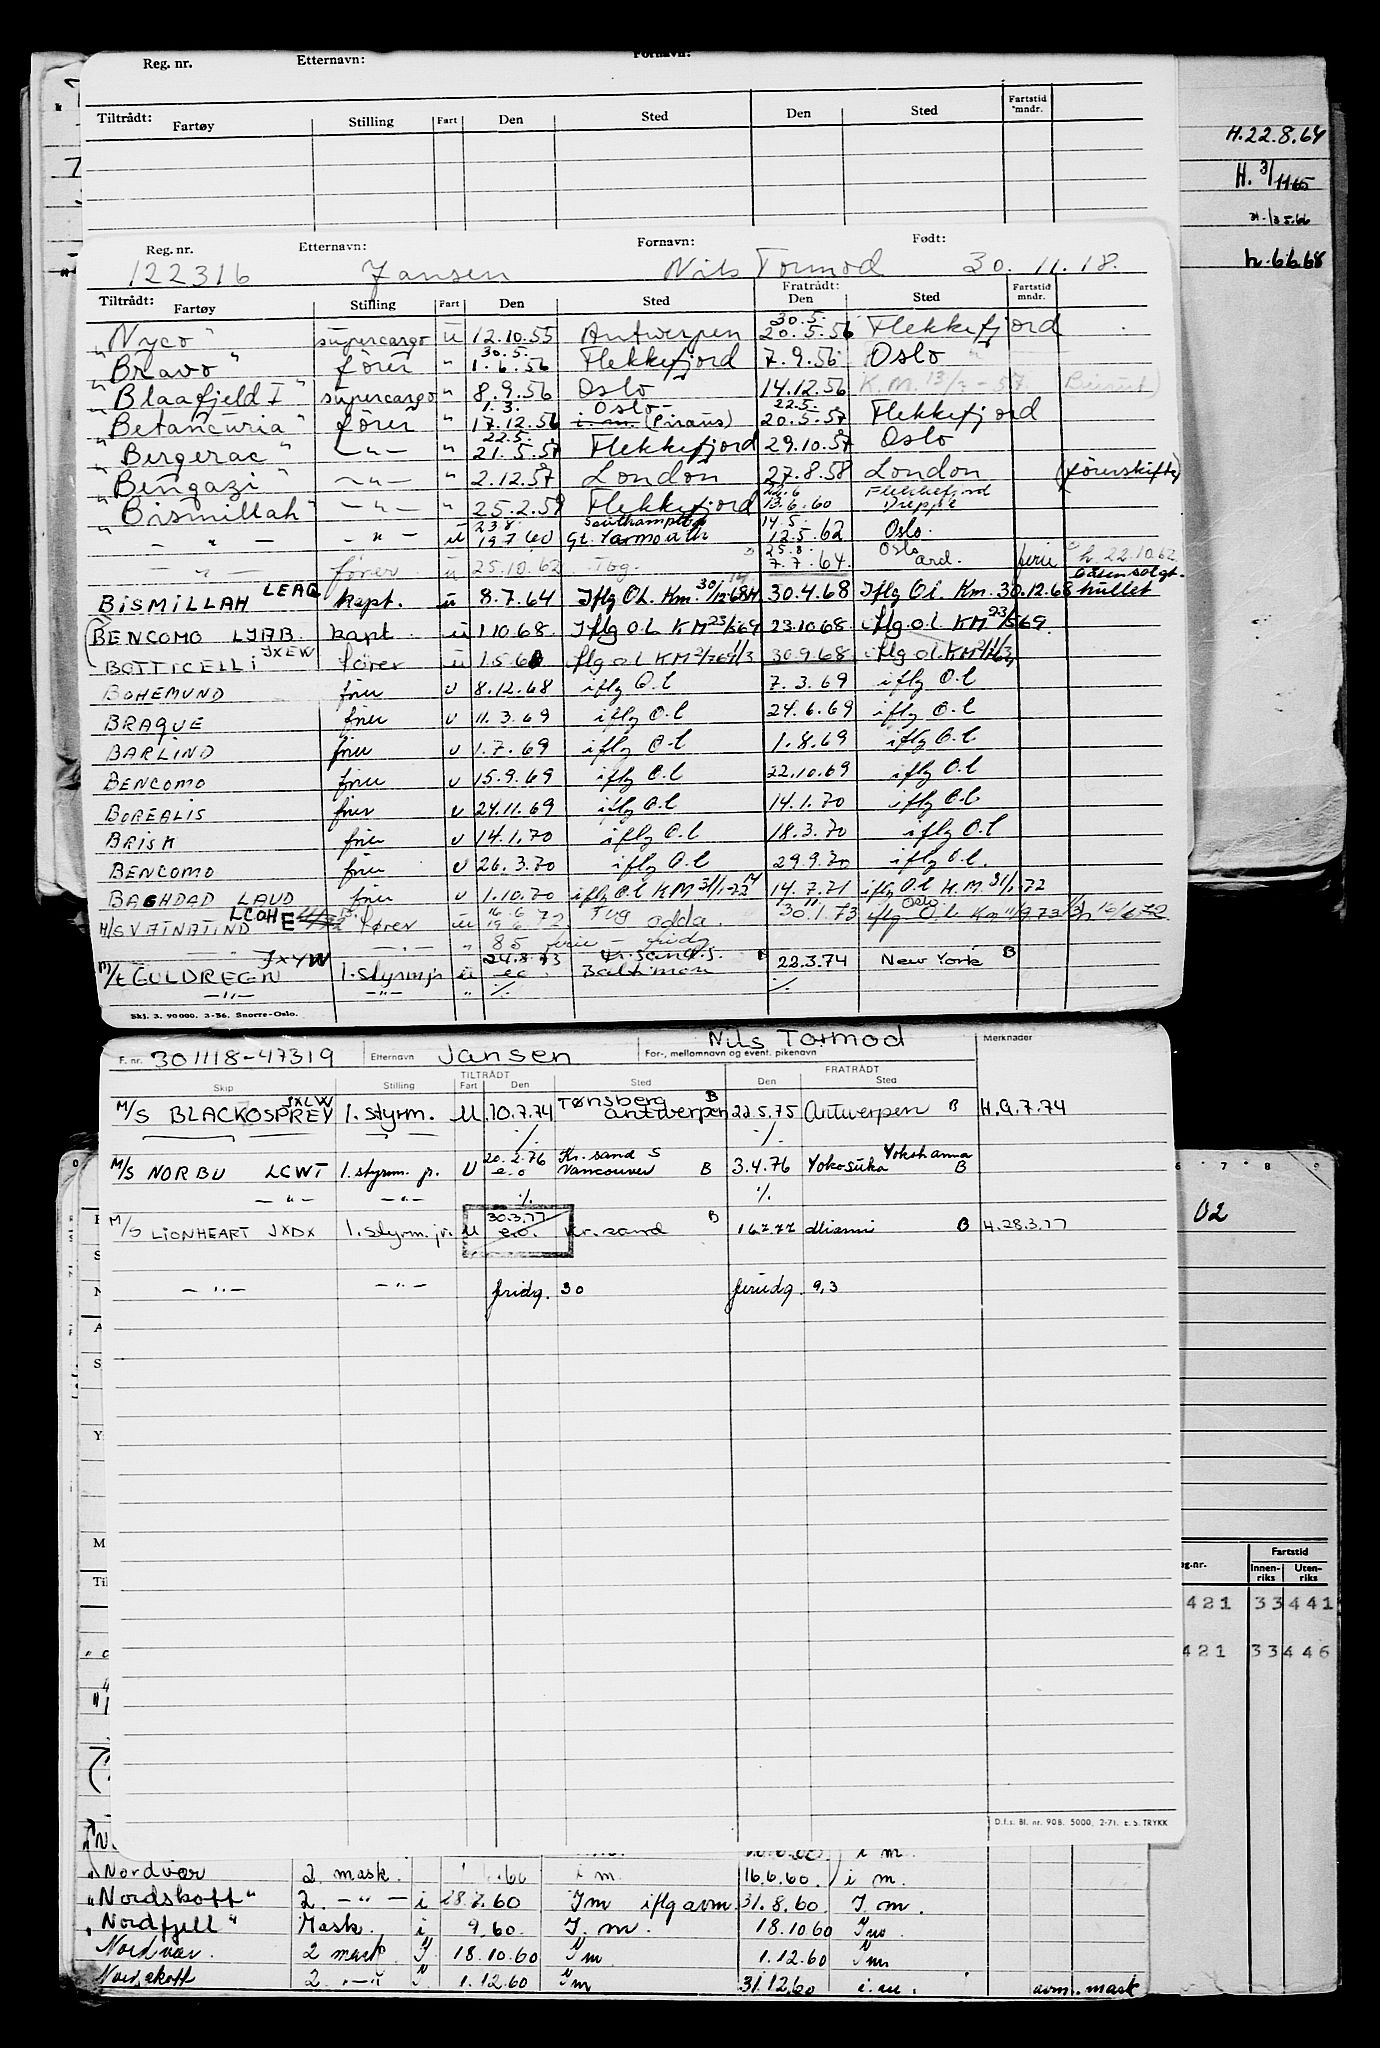 Reg. nr. Etternavn: Fornavn:
Tiltrådt: Fartøy Stilling Fart Den Sted Den Sted Fartstid mndr.
H. 22.8.64
H. 3/11 65
h. 6.6.68
Reg. nr. Etternavn: Fornavn: Født:
122316 Jansen Nils Tormod 30. 11. 18.
Tiltrådt: Fratrådt:
Fartøy Stilling Fart Den Sted Den Sted Fartstid mndr.
30.5.
"Nyco" supercargo u 12.10.55 Antwerpen 20.5.56 Flekkefjord
30.5.
"Bravo" förer " 1.6.56 Flekkefjord 7.9.56 Oslo "
"Blaafjeld I" supercargo " 8.9.56 Oslo 14.12.56 K.M. 13/3-57. Beirut)
1.3. Oslo 22.5.
"Betancuria" förer " 17.12.56 i.m. (Piräus) 20.5.57 Flekkefjord
22.5.
"Bergerac" -"- " 21.5.57 Flekkefjord 29.10.57 Oslo
"Bengazi" -"- " 2.12.57 London 27.8.58 London (förerskifte)
22.6 Flekkefjord
"Bismillah" -"- " 25.2.59 Flekkefjord 13.6.60 Dieppe
23.8. Southampton 14.5.
- " - - " - u 19.7.60 Gt. Yarmouth 12.5.62 Oslo.
25.8. Oslo h 22.10.62
- " - förer u 25.10.62 Tbg. 7.7.64. ard. ferie
BISMILLAH LEAQ kapt. u 8.7.64 Iflg O.L. Km. 30/12.68 30.4.68 Iflg O.l. Km. 30.12.68 hullet
BENCOMO LYAB kapt. u 1.10.68. Iflg O.L KM 23/5 69 23.10.68 iflg o.l KM 23/5 69.
BOTTICELLI JXEW förer u 1.5.68 iflg o.l KM 30.9.68 iflg o.l. KM
BOHEMUND förer u 8.12.68 iflg O.l 7.3.69 iflg O.l
BRAQUE förer u 11.3.69 iflg O.l 24.6.69 iflg O.l
BARLIND förer u 1.7.69 iflg O.l 1.8.69 iflg O.l.
BENCOMO förer u 15.9.69 iflg O.l 22.10.69 iflg O.l
BOREALIS förer u 24.11.69 iflg O.l 14.1.70 iflg O.l.
BRISK förer u 14.1.70 iflg O.l 18.3.70 iflg O.l
BENCOMO förer u 26.3.70 iflg O.l 29.9.70 iflg O.l.
BAGHDAD LAUD förer u 1.10.70 iflg O.l KM 31/1.72 14.7.71 iflg O.l K.M. 31/1.72
LCOH E 16.6 Tbg Oslo
M/S VATNATIND förer u 19.6.72. Odda. 30.1.73 iflg O.l. Km 11/9 73
" -"- " 85 ferie - fridg
JXYW 24.8.73 Kr. sand S. B
M/T GULDREGN 1. styrm jr u e.o. Baltimore 22.3.74 New York B
-"- -"- " ./. ./.
Skj. 3. 90000. 3-56. Snorre-Oslo.
F. nr. 301118-47319 Etternavn Jansen For-, mellomnavn og event. pikenavn Nils Tormod Merknader
TILTRÅDT FRATRÅDT
Skip Stilling Fart Den Sted Den Sted
JXLW Tønsberg B
M/S BLACKOSPREY 1. styrm. U 10.7.74 Antwerpen 22.5.75 Antwerpen B H. 9.7.74
./. ./.
20.2.76 Kr. sand S Yokohama
M/S NORBU LCWT 1. styrm. jr. U e.o Vancouver B 3.4.76 Yokosuka B
-"- -"- ./. ./.
30.3.77 B
M/S LIONHEART JXDX 1. styrm. jr. U e.o. Kr. sand 16.7.77 Miami B H. 28.3.77
-"- -"- fridg. 30 feriedg. 9,3
D.f.s. Bl. nr. 90B. 5000. 2-71. E. S. TRYKK
6 7 8 9
02
Fartstid
Innen-riks Uten-riks
421 33 441
421 33 446
i m.
"Nordvær 2. mask. i m. 16.6.60. i m.
"Nordskott" 2. -"- i 28.7.60 I m iflg avm. 31.8.60 I. m.
"Nordfjell" Mask. i 9.60. I. m. 18.10.60 I m.
Nordvær. 2 mask. I. 18.10.60 I m 1.12.60 I m
Nordskott 2. -"- I. 1.12.60 I m 31.12.60 i. m. avm. mask